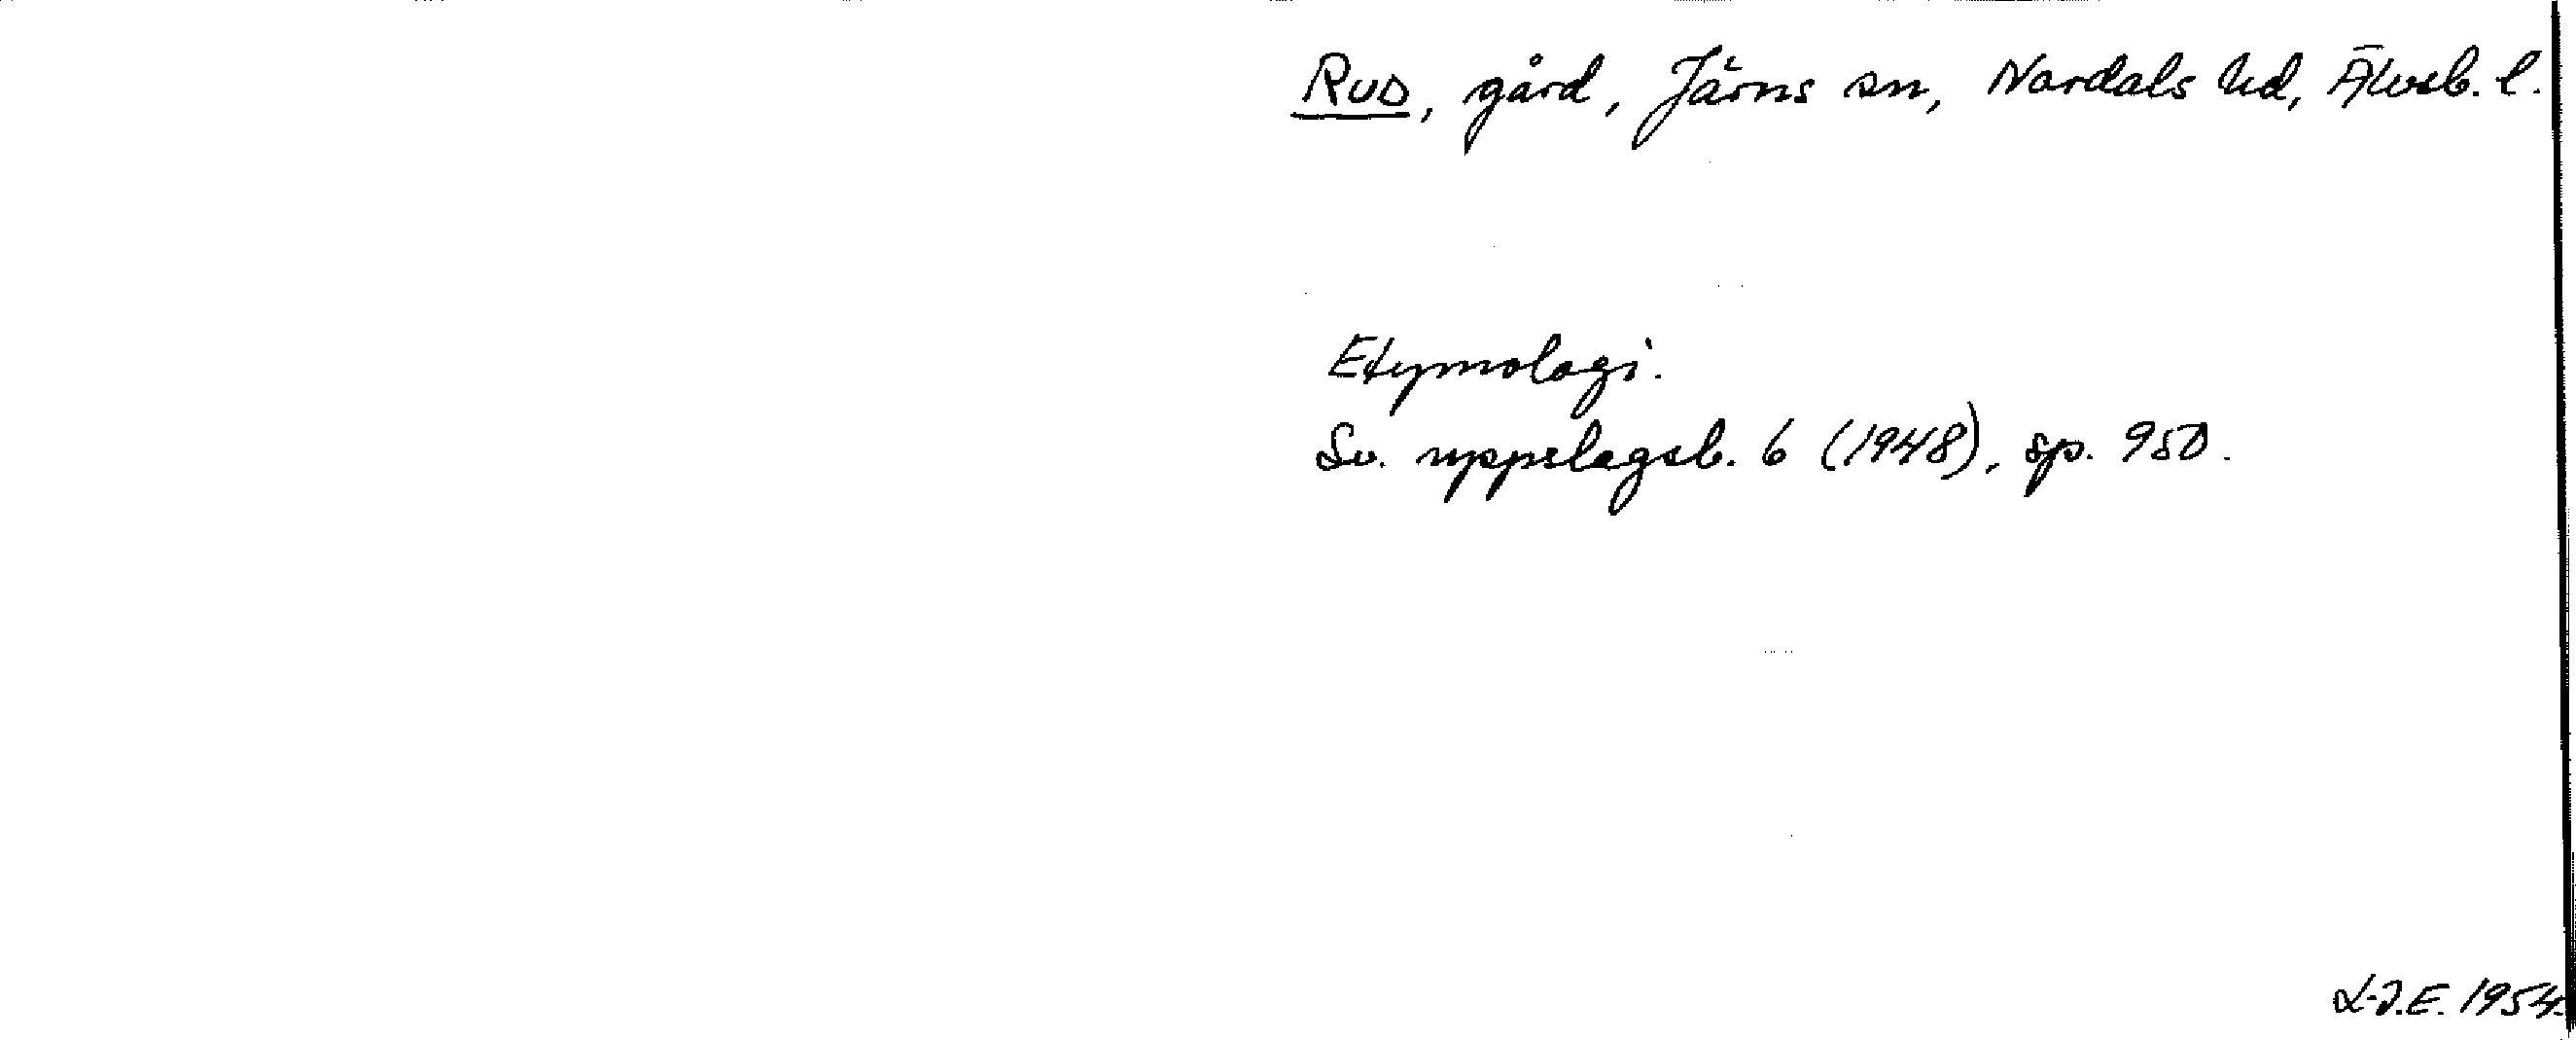 Rud, gård, Järns sn, Nordals hd, Älvsb. l.
Etymologi.
Sv. uppslagsb. 6 (1948), sp. 950.
L-J.E. 1954.